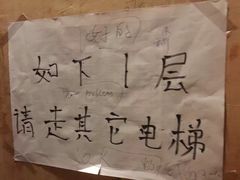 好的
如下1层
No problem
请走其它电梯